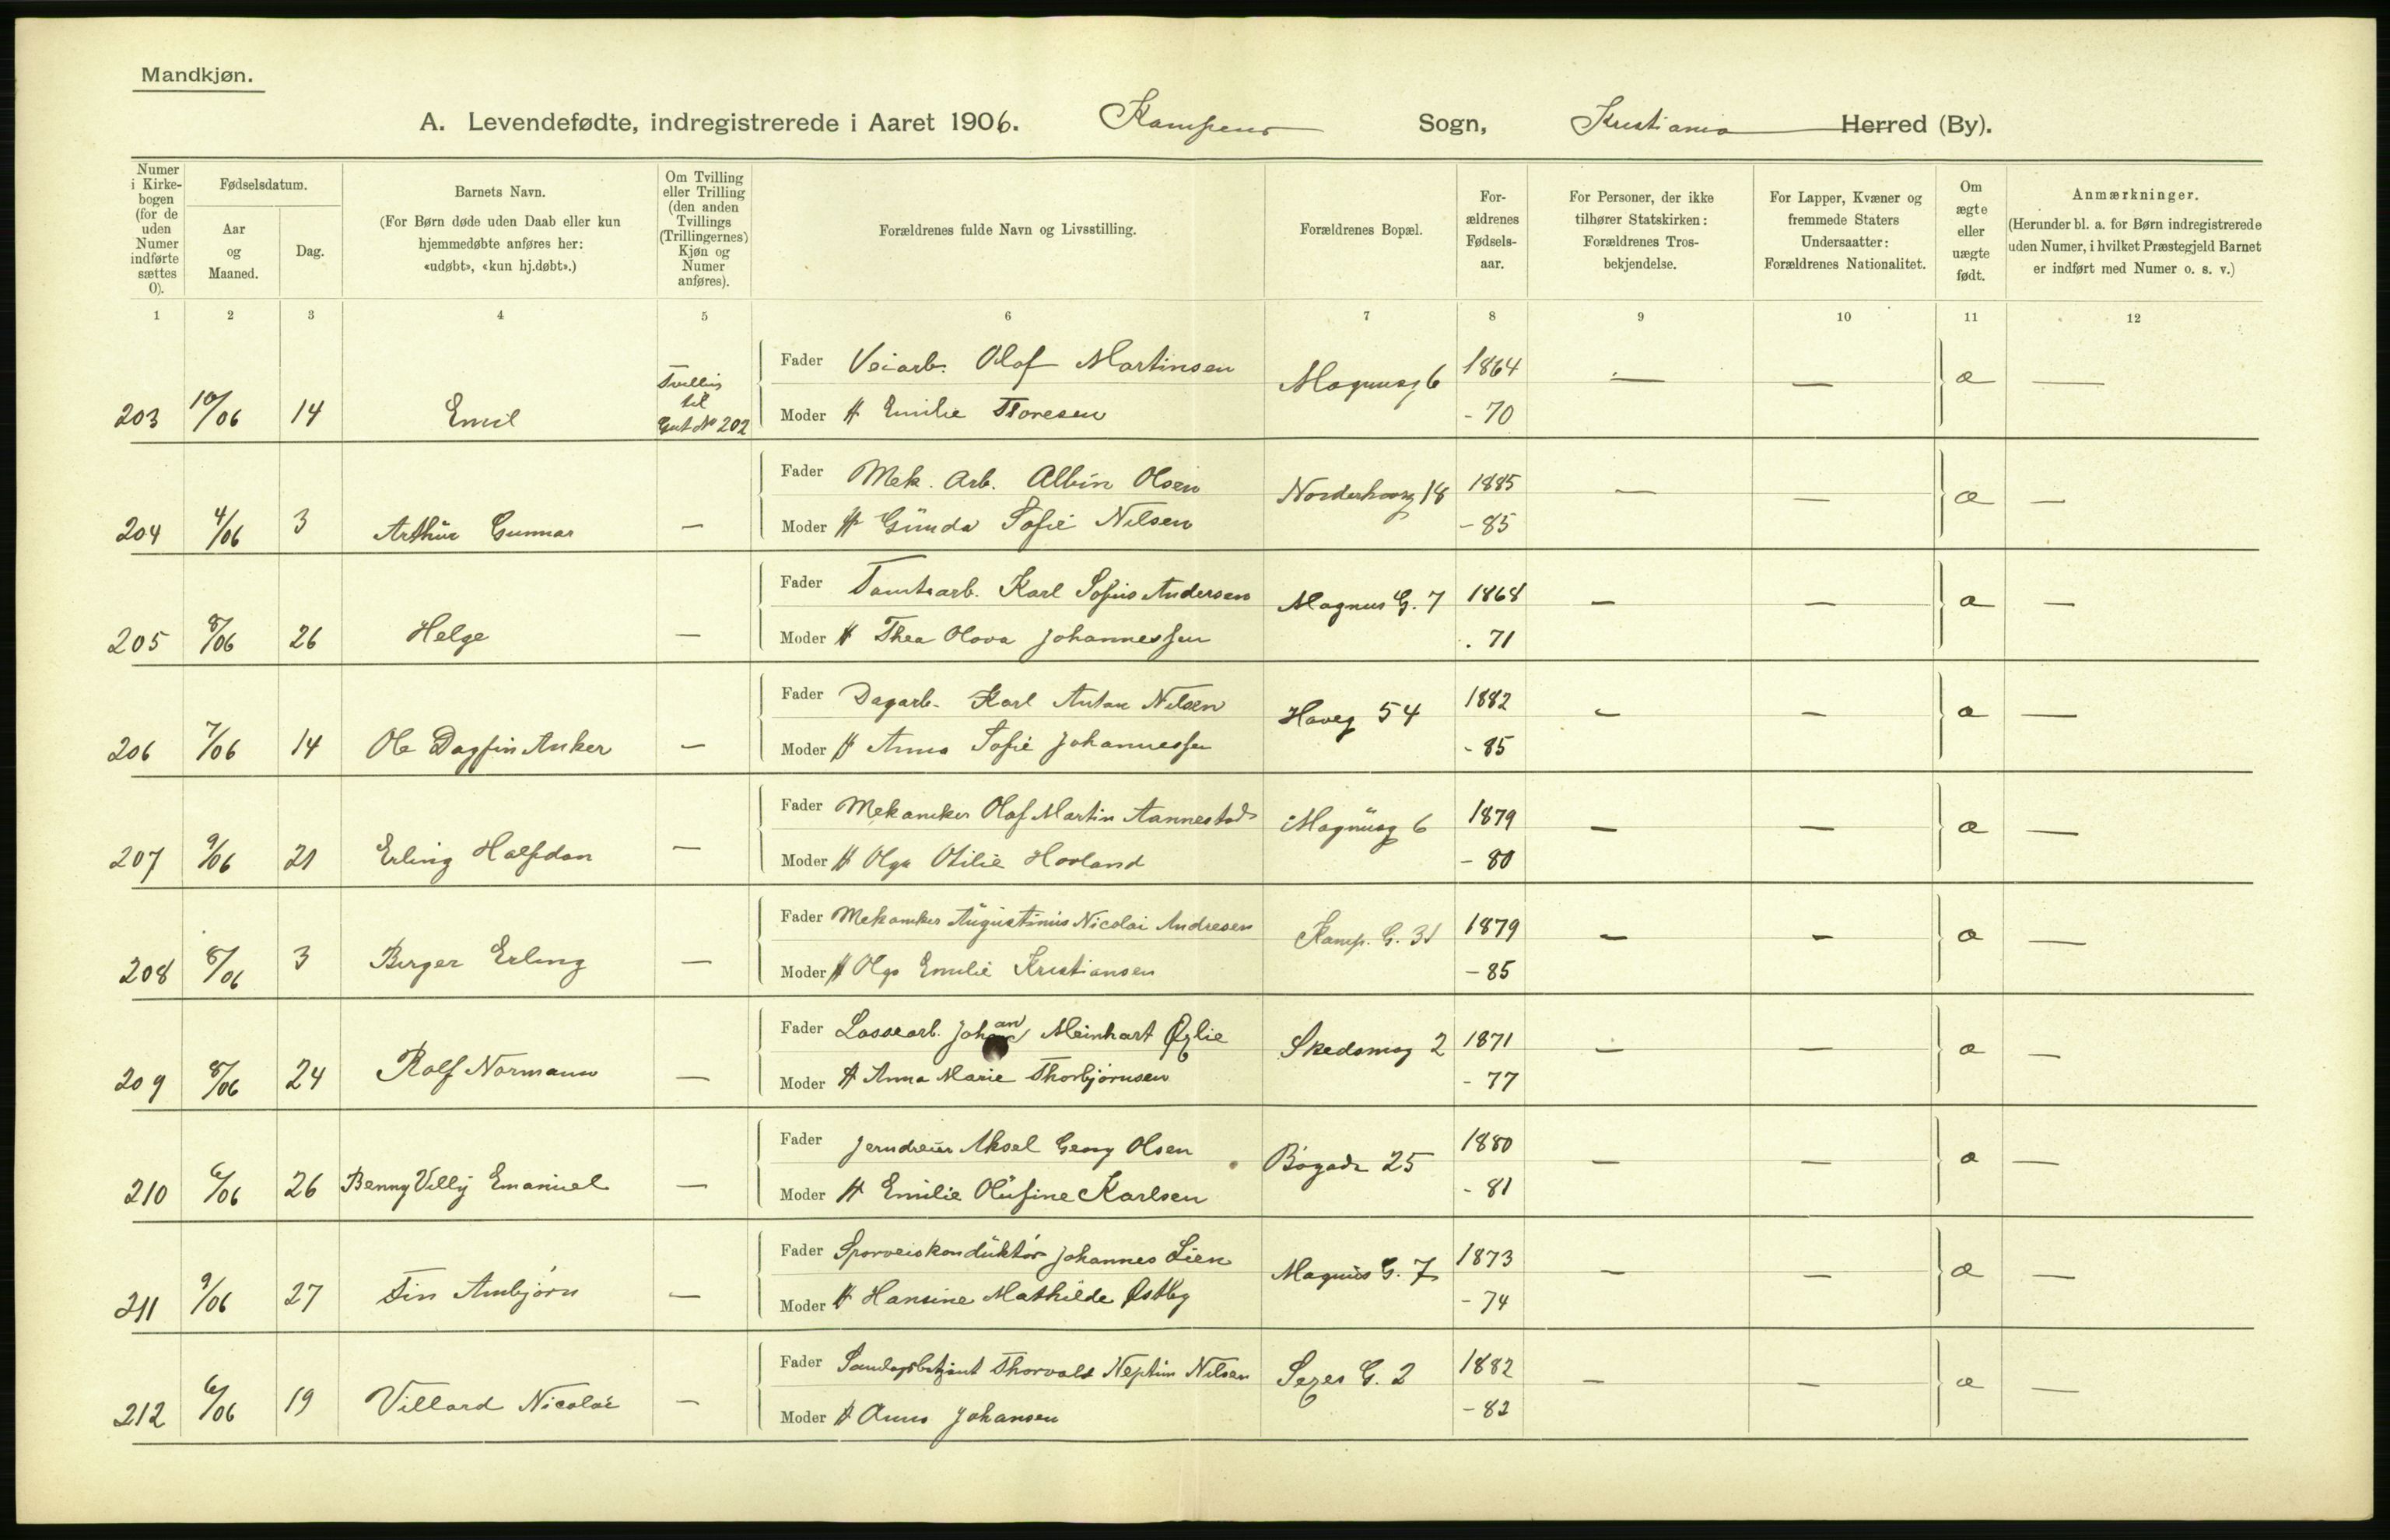 Mandkjøn.
A. Levendefødte, indregistrerede i Aaret 1906. Kampens Sogn, Kristiania Herred (By).
Numer i Kirke-bogen (for de uden Numer indførte sættes 0).
Fødselsdatum.
Aar og Maaned.
Dag.
Barnets Navn.
(For Børn døde uden Daab eller kun
hjemmedøbte anføres her:
«udøbt», «kun hj.døbt».)
Om Tvilling
eller Trilling
(den anden
Tvillings
(Trillingernes)
Kjøn og
Numer
anføres).
Forældrenes fulde Navn og Livsstilling.
Forældrenes Bopæl.
For-
ældrenes
Fødsels-
aar.
For Personer, der ikke
tilhører Statskirken:
Forældrenes Tros-
bekjendelse.
For Lapper, Kvæner og
fremmede Staters
Undersaatter:
Forældrenes Nationalitet.
Om
ægte
eller
uægte
født.
Anmærkninger.
(Herunder bl. a. for Børn indregistrerede
uden Numer, i hvilket Præstegjeld Barnet
er indført med Numer o. s. v.)
1 2 3 4 5 6 7 8 9 10 11 12
203 10/06 14 Emil Tvilling til Gut No 202
Fader Veiarb. Olaf Martinsen Magnusg 6 1864 — — æ —
Moder H Emilie Thoresen - 70
204 4/06 3 Arthur Gunnar —
Fader Mek. Arb. Albin Olsen Norderhovsg 18 1885 — — æ —
Moder H Gunda Sofie Nilsen - 85
205 8/06 26 Helge —
Fader Tomtearb. Karl Sofus Andersen Magnus G. 7 1868 — — æ —
Moder H Thea Olava Johannessen . 71
206 7/06 14 Ole Dagfin Anker —
Fader Dagarb. Karl Anton Nilsen Haveg 54 1882 — — æ —
Moder H Anna Sofie Johannessen - 85
207 9/06 21 Erling Halfdan —
Fader Mekaniker Olaf Martin Aannestad Magnusg 6 1879 — — æ —
Moder H Olga Otilie Hovland - 80
208 8/06 3 Birger Erling —
Fader Mekaniker Augustinius Nicolai Andresen Kamp. G. 31 1879 — — æ —
Moder H Olga Emilie Kristiansen - 85
209 8/06 24 Rolf Normann —
Fader Lossearb. Johan Meinhart Øglie Skedsmog 2 1871 — — æ —
Moder H Anna Marie Thorbjørnsen - 77
210 6/06 26 Benny Villy Emanuel —
Fader Jerndreier Aksel Georg Olsen Bøgade 25 1880 — — æ —
Moder H Emilie Olufine Karlsen - 81
211 9/06 27 Finn Arnbjørn —
Fader Sporveiskonduktør Johannes Lien Magnus G. 7 1873 — — æ —
Moder H Hansine Mathilde Østby - 74
212 6/06 19 Villard Nicolai —
Fader Thorvald Neptun Nilsen G. 2 1882 — — æ —
Moder H Anna Johansen - 82